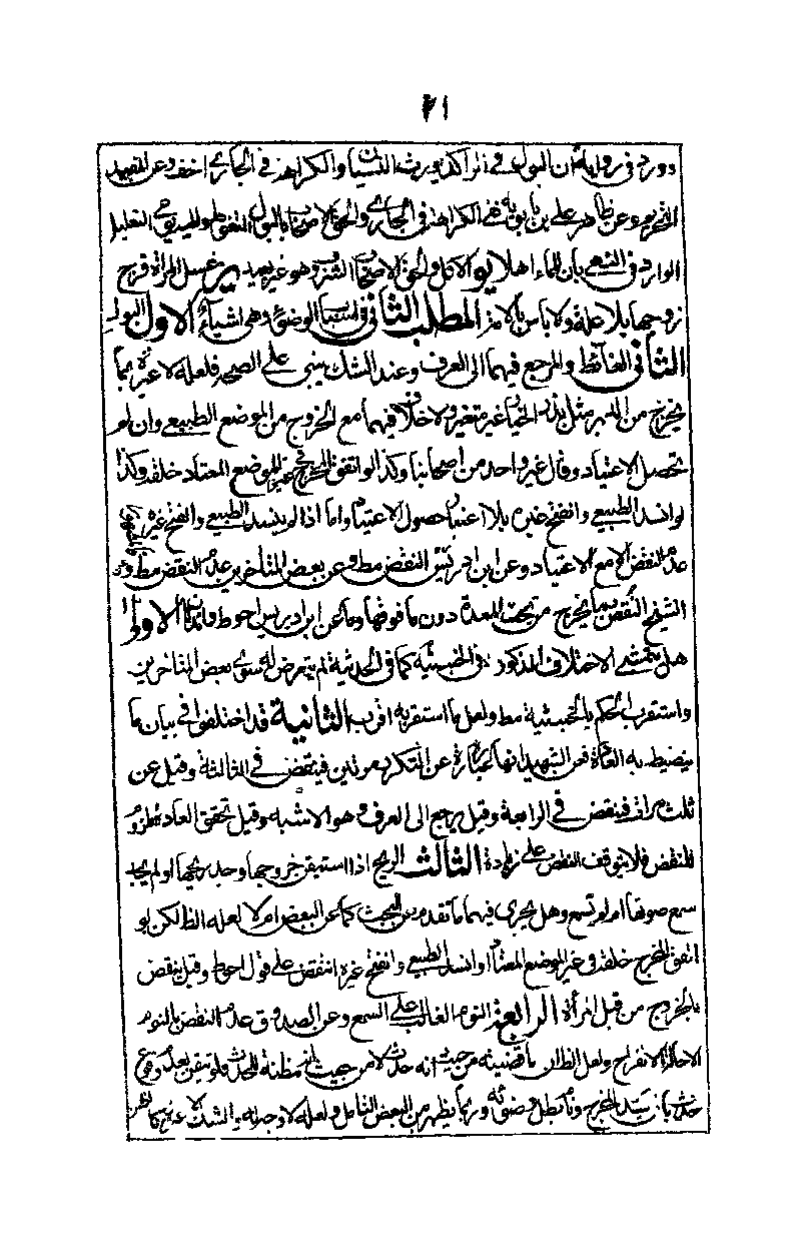 ٢١
وورد في رواية ان البول في الراكد يورث النسيان والكراهة في الجاري اخف وعن المفيد
التحريم وعن ظاهر علي بن بابويه نفي الكراهة في الجاري والحق الاصحاب بالبول التغوط وللمديوم التعليل
الوارد في النهي بان للماء اهلا يو الاكل والحق الاصحاب الشرب وهو غير بعيد غسل المراة فرج
زوجها بلا علة ولا باس بالامة المطلب الثاني في اسباب الوضوء وهي اشياء الاول البول
الثاني الغائط والمرجع فيهما الى العرف وعند الشك يبنى على الصحة فلعله لا عبرة بما
يخرج من الدبر مثل بذر الخيار غير متغير ولا خلاف فيهما مع الخروج من الموضع الطبيعي وان لم
تحصل الاعتياد وقال غير واحد من اصحابنا وكذا لو اتفق المخرج غير الموضع المعتاد خلقة وكذا
لو انسد الطبيعي وانفتح غيره بلا اعتبار حصول الاعتياد واما اذا لم ينسد الطبيعي وانفتح غيره
عدم النقض الا مع الاعتياد وعن ابن ادريس النقض مط وعن بعض المتاخرين عدم النقض مط وعن
الشيخ النقض بما يخرج من تحت المعدة دون ما فوقها وما عن ابن ادريس احوط فائدتان الاولى
هل يتمشى الاختلاف المذكور في الخبثية كما في الحدثية لم يتعرض له سوى بعض المتاخرين
واستقرب الحكم بالخبثية مط ولعل ما استقربه اقرب الثانية قد اختلفوا في بيان ما
ينضبط به العادة فعن الشهيد انها عبارة عن التكرر مرتين فينقض في الثالثة وقيل عن
ثلث مرات فينقض في الرابعة وقيل يرجع الى العرف وهو الاشبه وقيل تحقق العادة ملزوم
للنقض فلا يتوقف النقض على زيادة الثالث الريح اذا استيقن خروجها وجد ريحها او لم يجد
سمع صوتها ام لم يسمع وهل يجرى فيهما ما تقدم من البحث كما عن البعض ام لا لعله الظ لكن لو
اتفق المخرج خلقة في غير الموضع المعتاد او انسد الطبيعي وانفتح غيره انتقض على قول احوط وقيل ينقض
بالخروج من قبل المراة الرابع النوم الغالب على السمع وعن الصدوق عدم النقض بالنوم
الا حالة الانفراج ولعل الظ ان ناقضيته من حيث انه حدث لا من حيث انه مظنة للحدث فلو تيقن بعدم وقوع
حدث بان يسد المخرج ونام بطل وضوئه وربما يظهر من البعض التامل ولعله لا وجه له والشك لا عبرة به كما